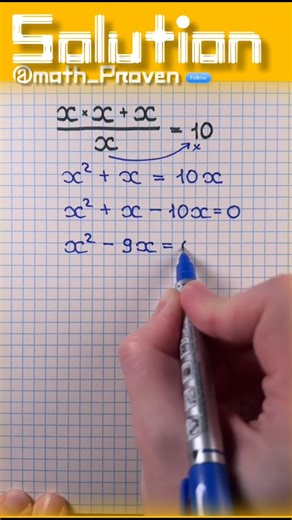 Solution
@math_Proven Follow
x × x + x
x
= 10
x
x² + x = 10x
x² + x - 10x = 0
x² - 9x =